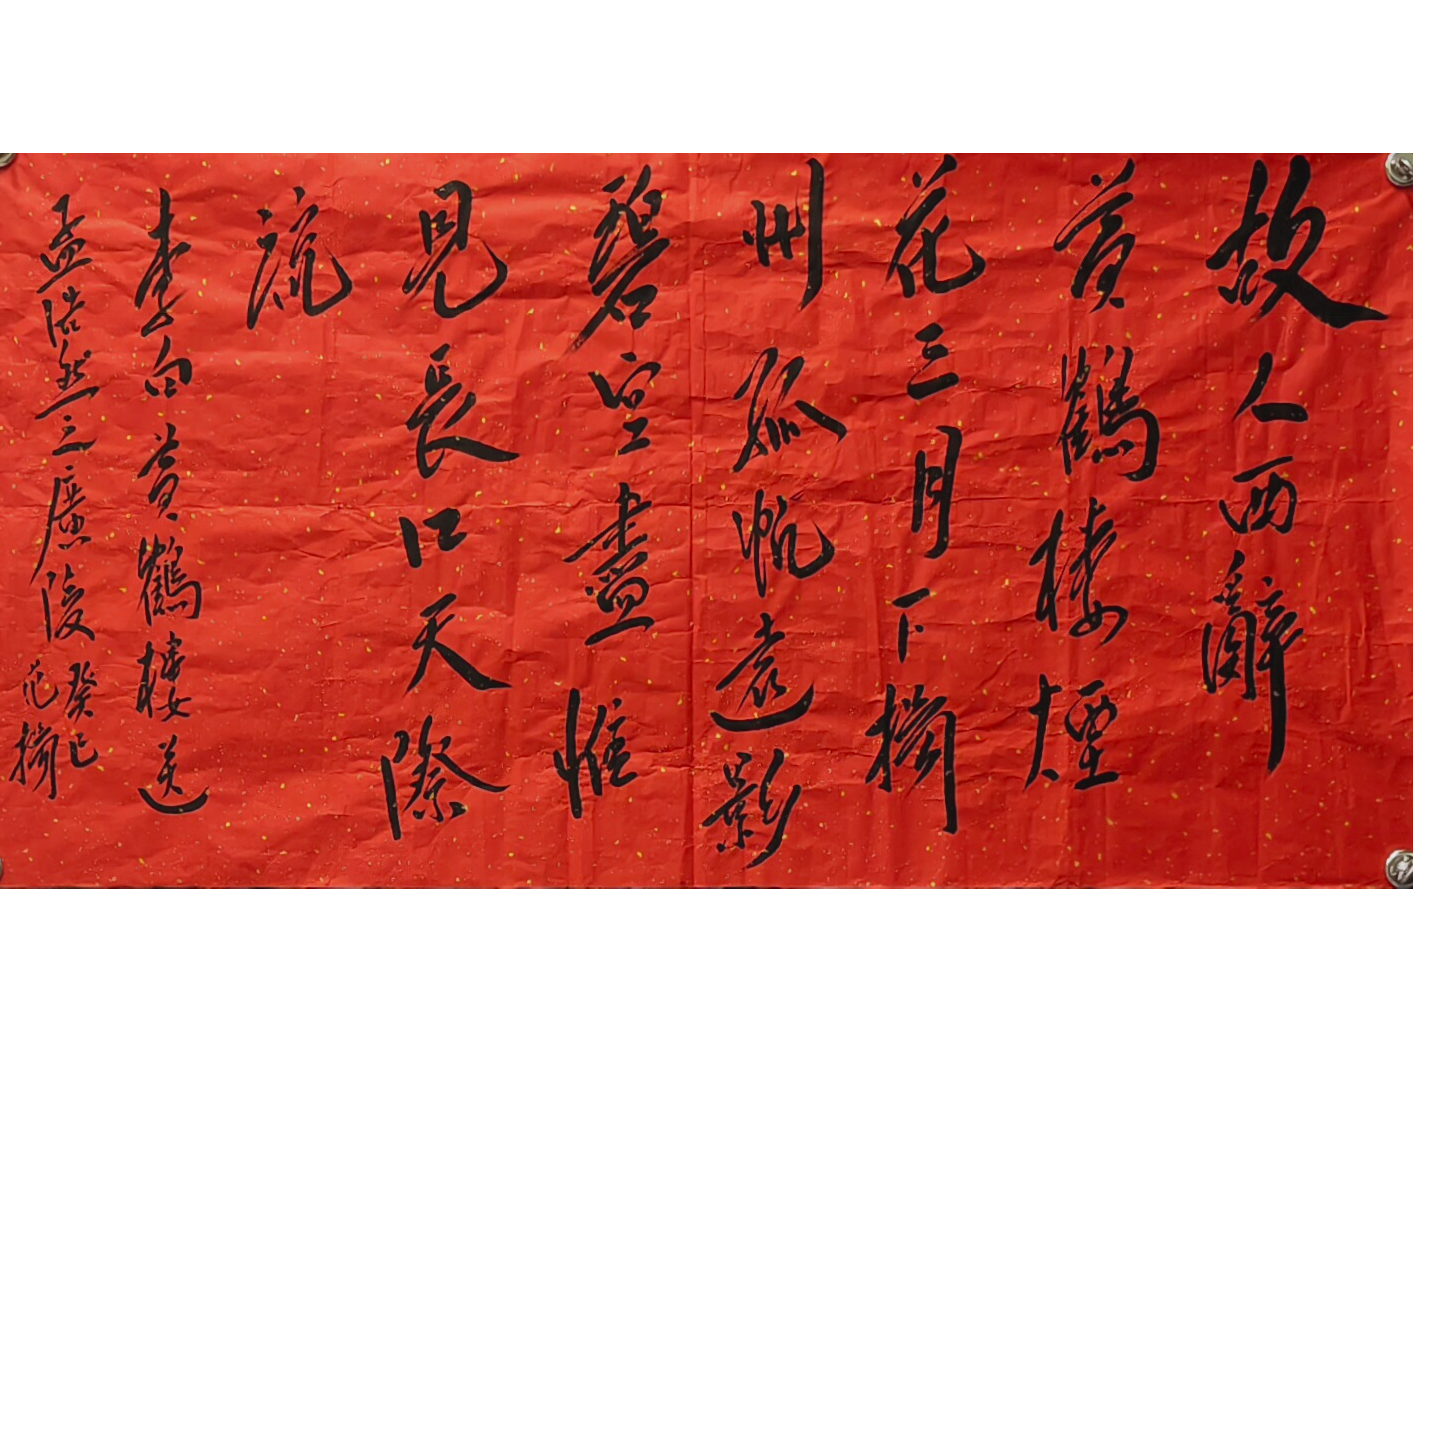 故人西辭
黄鶴樓煙
花三月下揚
州孤帆遠影
碧空盡惟
見長江天際
流
李白黄鶴樓送
孟浩然之廣陵
癸巳
范揚